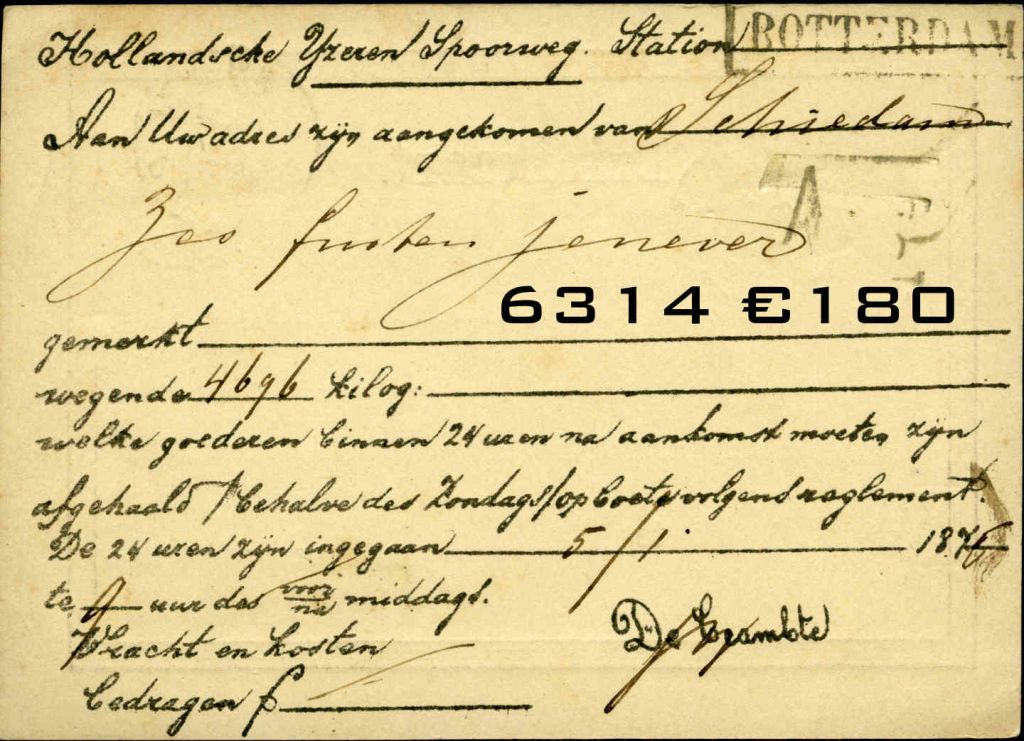 Hollandsche Yzeren Spoorweg. Station ROTTERDAM
Aan Uw adres zijn aangekomen van Schiedam
fusten jenever
6314 €180
gemerkt
wegende 4696 kilog:
welke goederen binnen 24 uren na aankomst moeten zijn
afgehaald /behalve des Zondags/op boete volgens reglement.
De 24 uren zijn ingegaan 5/1 187
te 9 uur des voor/na middags.
Vracht en kosten
De beambte
bedragen f